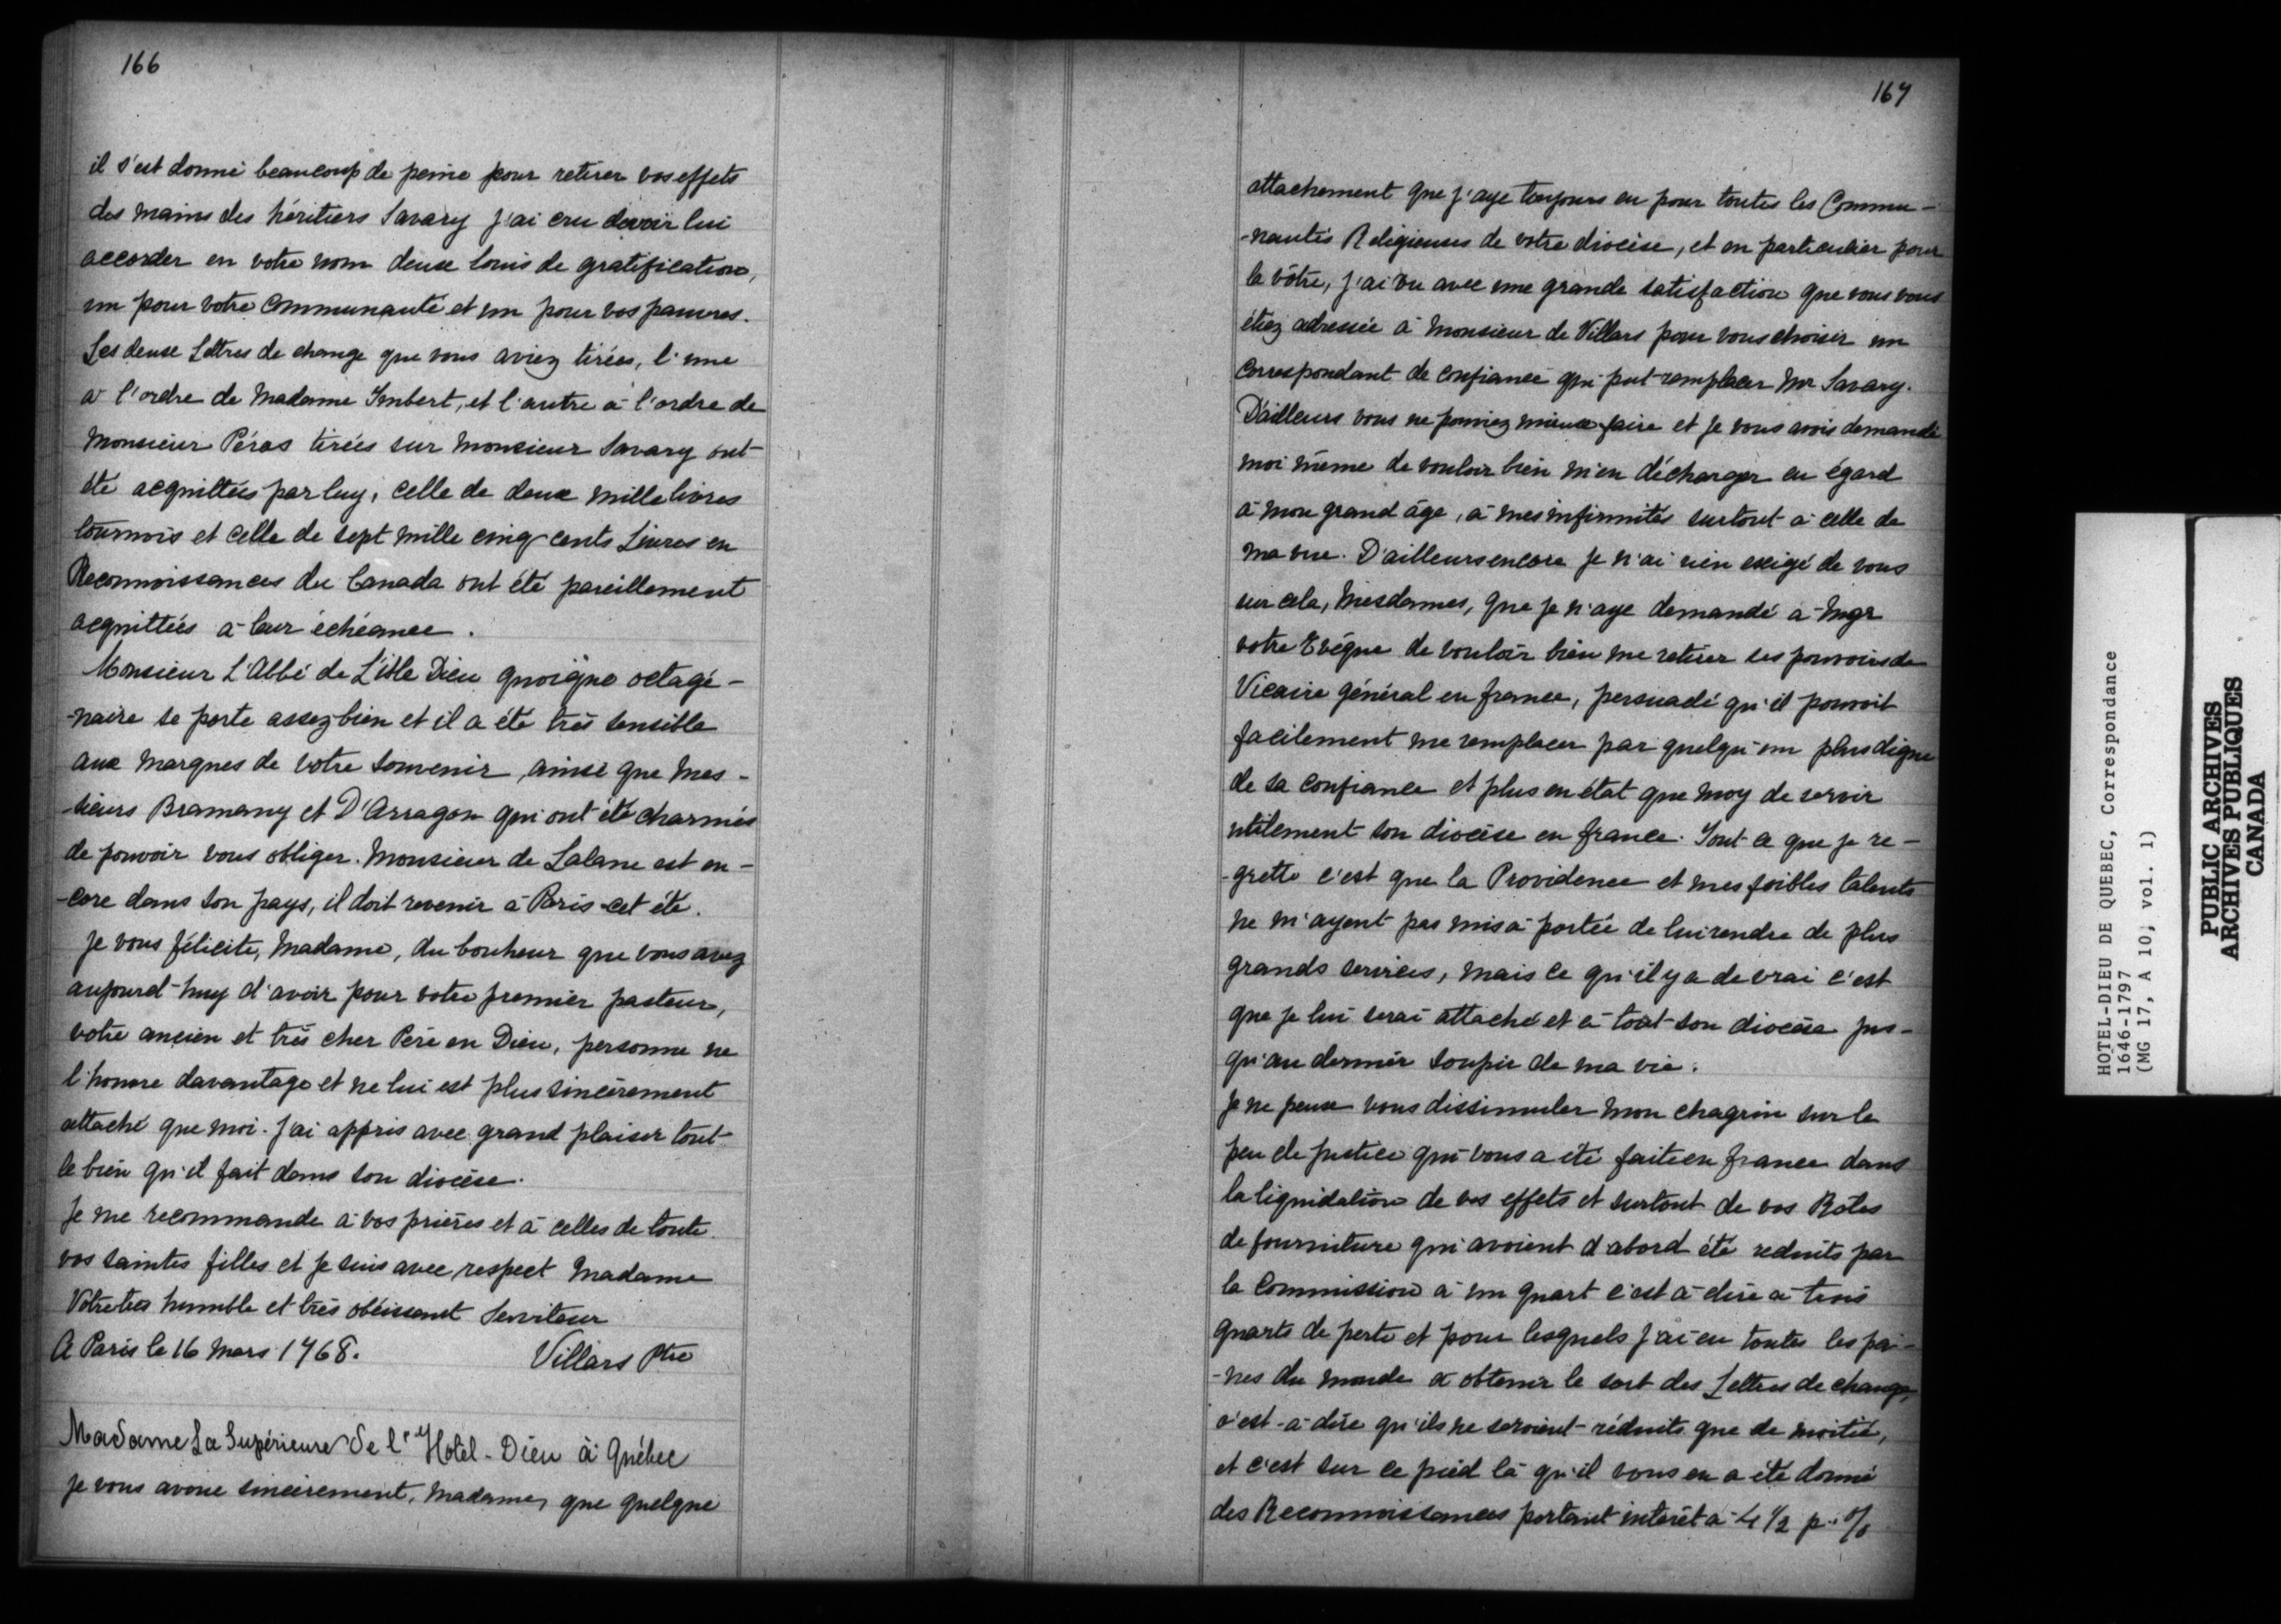 166
il s'est donné beaucoup de peine pour retirer vos effets
des mains des héritiers Savary j'ai cru devoir lui
accorder en votre nom deux louis de gratification,
un pour votre Communauté et un pour vos pauvres.
Les deux Lettres de change que vous aviez tirées, l'une
à l'ordre de Madame Imbert, et l'autre à l'ordre de
Monsieur Péras tirées sur Monsieur Savary ont
été acquittées par luy, celle de deux mille livres
tournois et celle de sept mille cinq cents Livres en
Reconnoissances du Canada ont été pareillement
acquittées à leur échéance.
Monsieur L'Abbé de L'isle Dieu quoique octagé-
-naire se porte assez bien et il a été très sensible
aux marques de votre souvenir, ainsi que Mes-
-sieurs Bramany et D'Arragon qui ont été charmés
de pouvoir vous obliger. Monsieur de Lalane est en-
-core dans son pays, il doit revenir à Paris cet été.
Je vous félicite, Madame, du bonheur que vous avez
aujourd-huy d'avoir pour votre premier pasteur,
votre ancien et très cher Père en Dieu, personne ne
l'honore davantage et ne lui est plus sincèrement
attaché que moi. J'ai appris avec grand plaisir tout
le bien qu'il fait dans son diocèse.
Je me recommande à vos prières et à celles de toute
vos saintes filles et je suis avec respect Madame
Votre très humble et très obéissant Serviteur
A Paris le 16 Mars 1768. Villars Ptre
Madame La Supérieure de l'Hotel-Dieu à Québec
Je vous avoue sincèrement, Madame, que quelque
167
attachement que j'aye toujours eu pour toutes les Commu-
-nautés Religieuses de votre diocèse, et en particulier pour
la vôtre, j'ai vu avec une grande satisfaction que vous vous
étiez adressée à Monsieur de Villars pour vous choisir un
Correspondant de confiance qui put remplacer Mr Savary.
D'ailleurs vous ne pouviez mieux faire et je vous avois demandé
moi même de vouloir bien m'en décharger eu égard
à mon grand âge, à mes infirmités surtout à celle de
ma vue. D'ailleurs encore je n'ai rien exigé de vous
sur cela, Mesdames, que je n'aye demandé à Mgr
votre Evêque de vouloir bien me retirer ses pouvoirs de
Vicaire général en france, persuadé qu'il pouvoit
facilement me remplacer par quelqu'un plus digne
de sa confiance et plus en état que moy de servir
utilement son diocèse en france. Tout ce que je re-
-grette c'est que la Providence et mes foibles talents
ne m'ayent pas mis à portée de lui rendre de plus
grands services, mais ce qu'il y a de vrai c'est
que je lui serai attaché et à tout son diocèse jus-
qu'au dernier soupir de ma vie.
Je ne peux vous dissimuler mon chagrin sur le
peu de justice qui vous a été faite en france dans
la liquidation de vos effets et surtout de vos Rôles
de fourniture qui avoient d'abord été reduits par
la Commission à un quart c'est à dire à trois
quarts de perte et pour lesquels j'ai eu toutes les pei-
-nes du monde à obtenir le sort des Lettres de change,
c'est-à-dire qu'ils ne seroient réduits que de moitié,
et c'est sur ce pied là qu'il vous en a été donné
des Reconnoissances portant intérêt à 4 1/2 p. %
HOTEL-DIEU DE QUEBEC, Correspondance
1646-1797
(MG 17, A 10, vol. 1)
PUBLIC ARCHIVES
ARCHIVES PUBLIQUES
CANADA